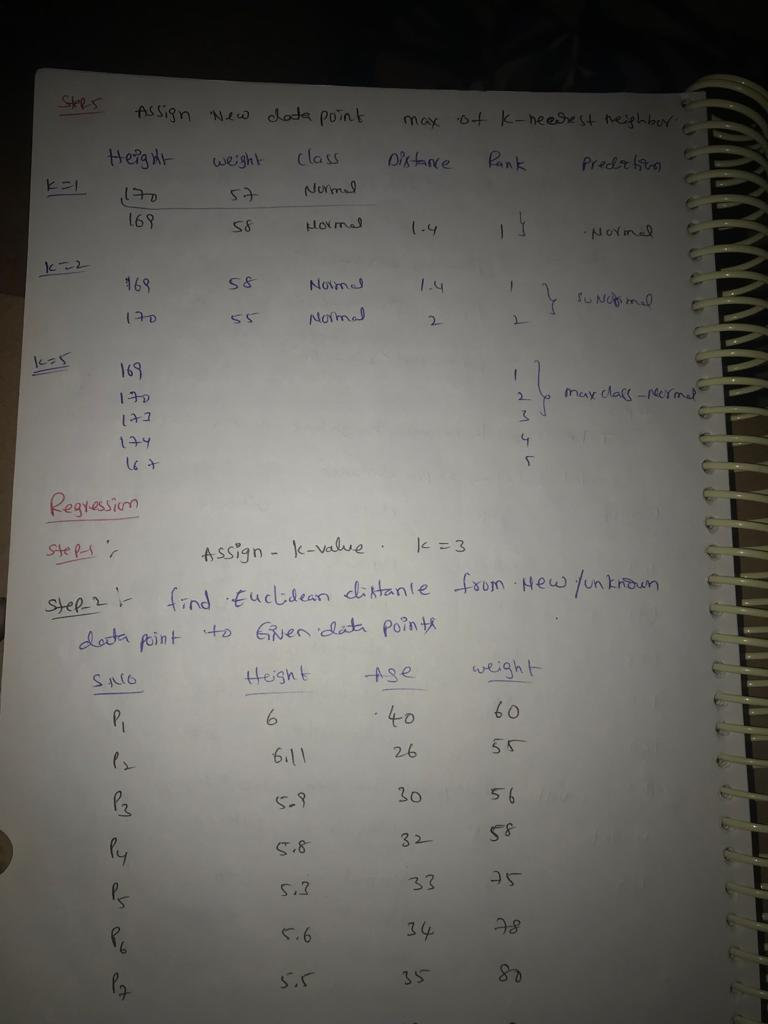 Step-5 Assign New data point max of K-nearest neighbor.
Height weight class Distance Rank Prediction
K=1 170 57 Normal
169 58 Normal 1.4 1 } Normal
K=2
169 58 Normal 1.4 1 } so Normal
170 55 Normal 2 2
K=5
169 1
170 2 } max class - normal
173 3
174 4
167 5
Regression
Step-1 :- Assign - k-value . k = 3
Step-2 :- find Euclidean distance from New/unknown
data point to Given data points
S.NO Height Age weight
P1 6 40 60
P2 6.11 26 55
P3 5.9 30 56
P4 5.8 32 58
P5 5.3 33 75
P6 5.6 34 78
P7 5.5 35 80